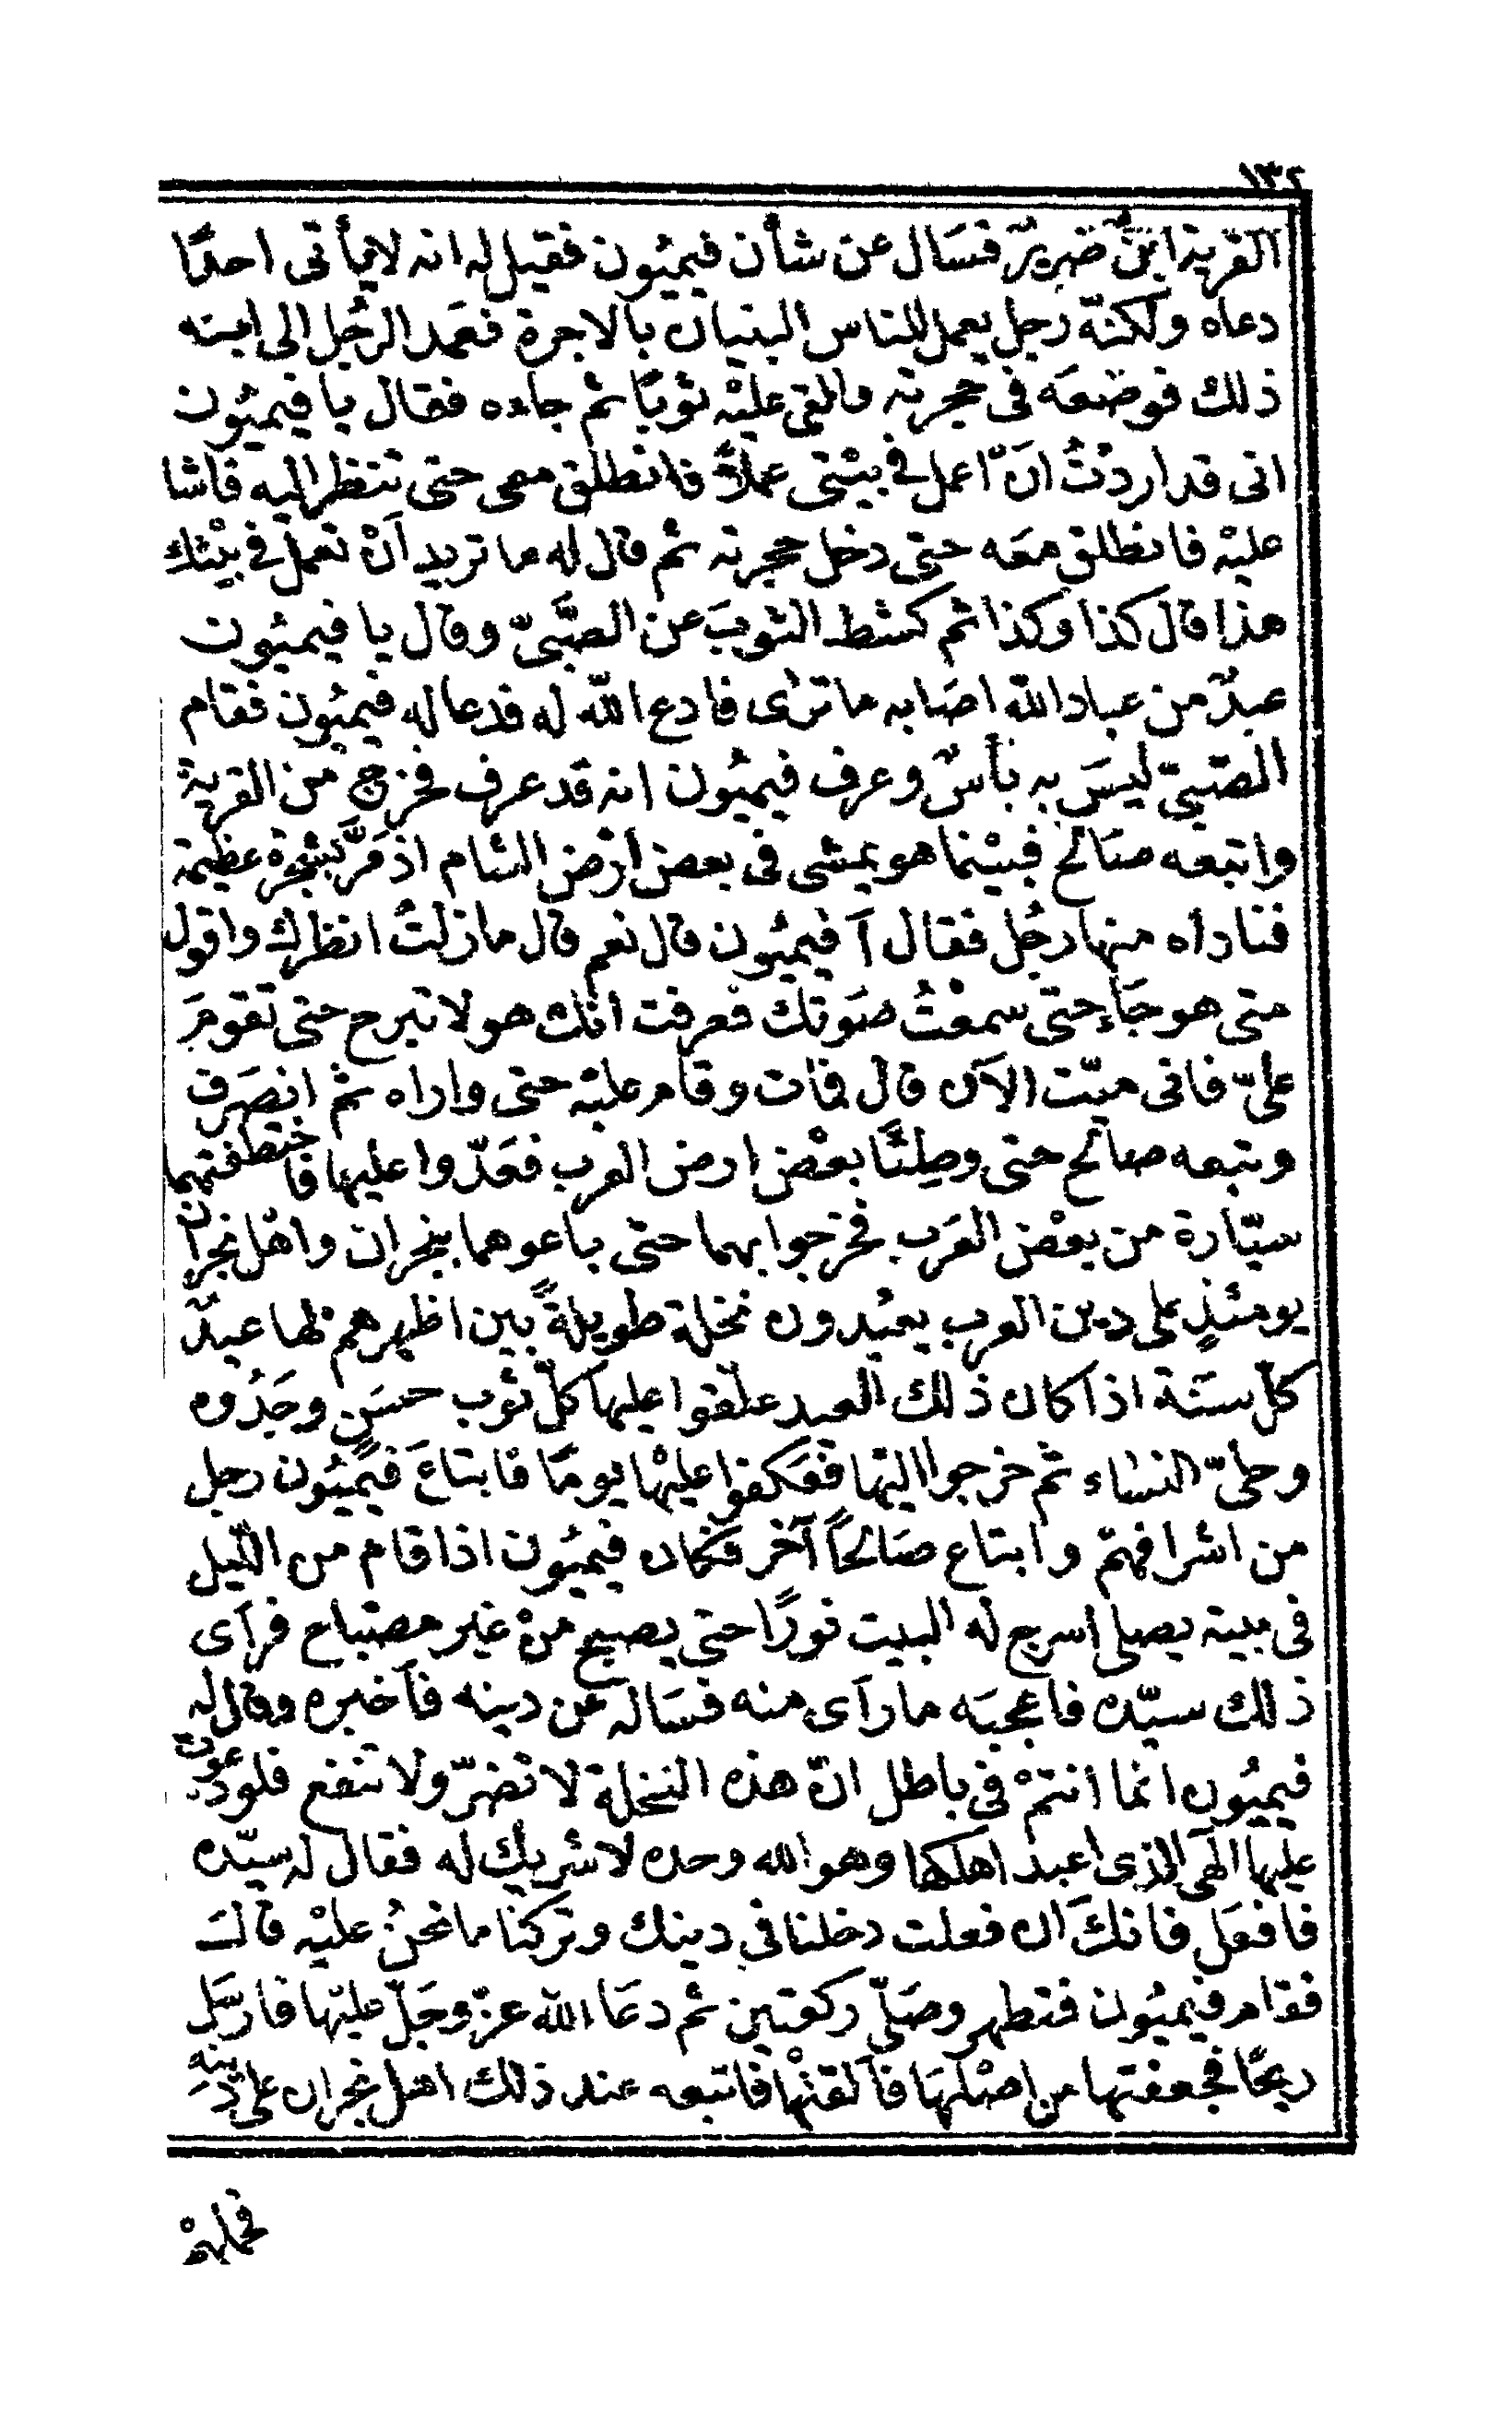 ١٣٢
القرية ابنٌ ضريرٌ فسَال عن شأن فيميُون فقيل له انه لا يأتى احدًا
دعاه ولكنّه رجل يعمل للناس البنيان بالاجرة فعَمد الرجُل الى ابنه
ذلك فوضعَه فى حجرته والقى عليْه ثوبًا ثم جاءه فقال يا فيميُون
انى قد اردْتُ انَّ اعمل فى بيْتى عملاً فانطلق معى حتى تنظر اليه فاشا
عليْه فانطلق معَه حتى دخل حجرته ثم قال له ما تريد اَنْ تعمل فى بيْتك
هذا قالَ كذا وكذا ثم كشط الثوبَ عن الصَّبىّ وقال يا فيميُون
عبدٌ من عباد الله اصَابه ما ترٰى فادع الله له فدعا له فيميُون فقام
الصّبىّ ليسَ به بأسٌ وعرف فيميُون انه قد عرف فخرج من القرية
واتبعه صَالح فبيْنما هو يمشى فى بعض ارْض الشام اذ مَرَّ بشجرة عظيمة
فناداه منها رجُل فقال آ فيميُون قال نعم قال ما زلتُ انظرك واقول
متى هو جَاءٍ حتى سمعْتُ صَوتك فعرفت انّك هو لا تبرح حتى تقومَ
علىّ فانى ميّت الآن قال فمات وقام عليْه حتى واراه ثم انصَرف
وتبعه صالح حتى وطِئَا بعْض ارض العرب فعَدّوا عليها فاختطفتهما
سيّارة من بعْض العَرب فخرجوا بهما حتى باعوهما بنجران واهْل نجران
يومئذٍ على دين العرب يعبْدون نخلة طويلةً بين اظهرهم لها عيدٌ
كلّ سَنة اذا كان ذلك العيد علّقوا عليها كلّ ثوب حسَنٍ وجَدُوه
وحلىّ النساء ثم خرجوا اليْها فعَكفوا عليْها يومًا فابتاعَ فيْميُون رجل
من اشرافهمْ وابتاع صَالحًا آخر فكان فيميُون اذا قام من اللّيل
فى بيته يصلى اسرج له البيت نورًا حتى يصبح منْ غير مصْباح فرآى
ذلك سيّده فاعجبَه ما رآى منه فسَاله عن دينه فاَخبره وقال له
فيميُون انما انتمْ فى باطل انّ هذه النخلة لا تضرّ ولا تنفع فلو دعوت
عليها الٰهى الذى اعبدُ اَهلكها وهو الله وحده لا شريك له فقال له سيّده
فافعَل فانكَ اَن فعلت دخلنا فى دينك وتركنا ما نحنُ عليْه قالَ
فقام فيميُون فتطهر وصَلّى ركعتين ثم دعَا الله عزّ وجَلّ عليْها فارسَل
ريحًا فجعفتها من اصْلهَا فاَلقتْها فاتبعه عند ذلك اهل نجران على دينهِ
فحملهمْ